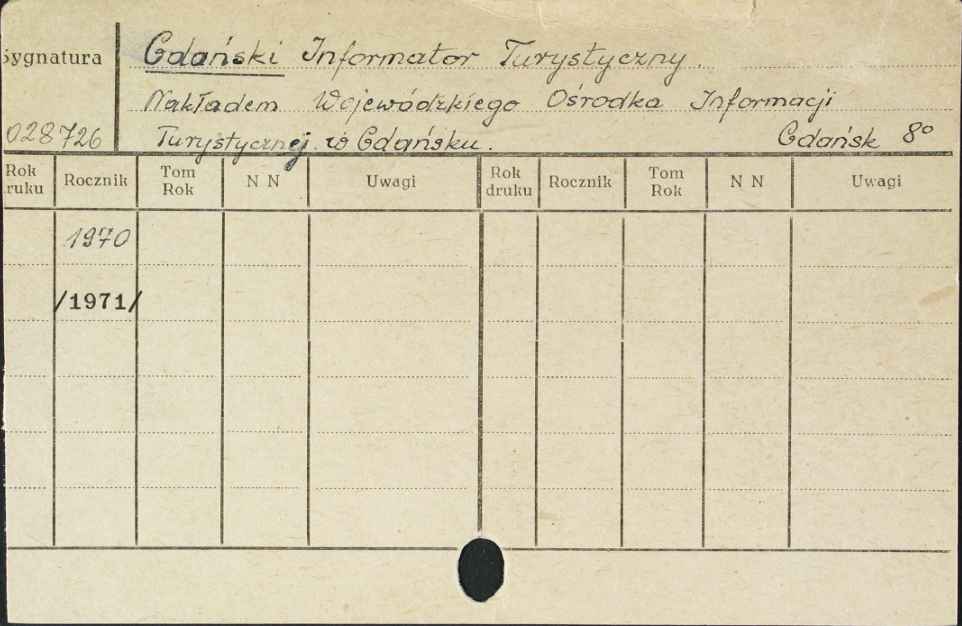 Sygnatura Gdański Informator Turystyczny.
Nakładem Wojewódzkiego Ośrodka Informacji
028726 Turystycznej w Gdańsku. Gdańsk 8°
Rok druku Rocznik Tom Rok N N Uwagi Rok druku Rocznik Tom Rok N N Uwagi
1970
/1971/